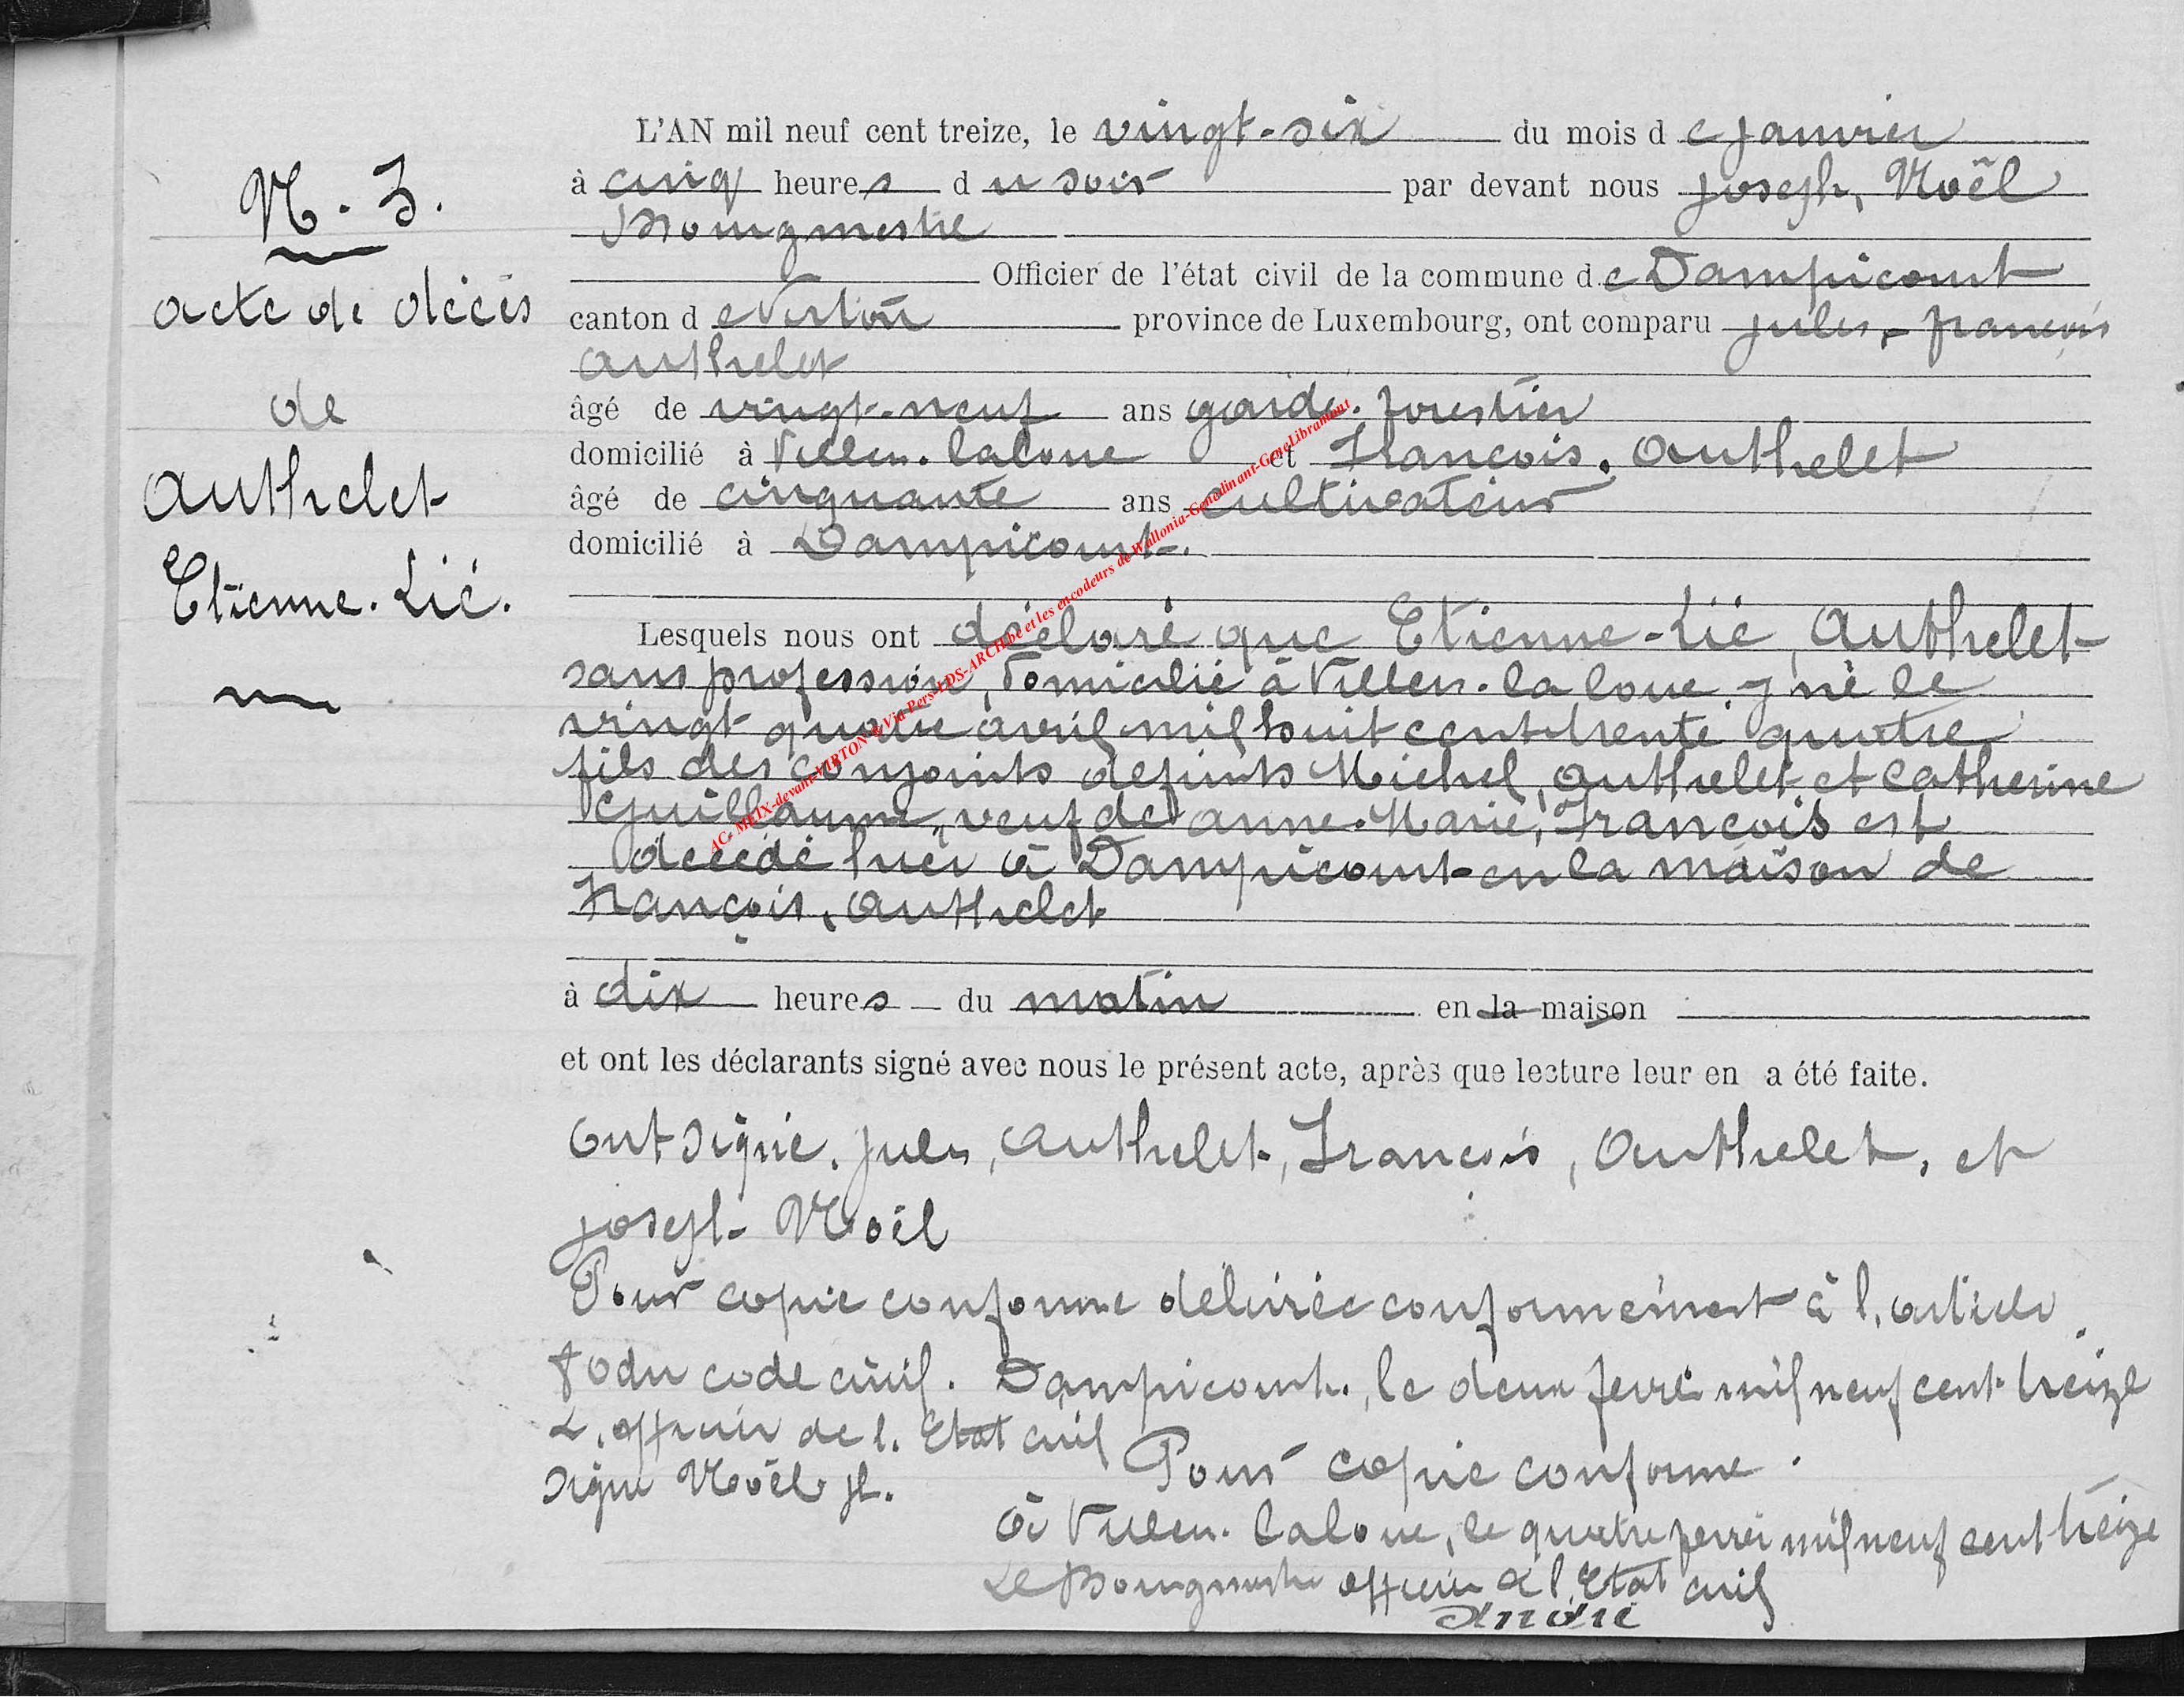 N. 3.
acte de décès
de
Authelet
Etienne. Lié.
L'AN mil neuf cent treize, le vingt-six du mois de janvier
à cinq heures du soir par devant nous joseph, Noël
Bourgmestre
Officier de l'état civil de la commune de Dampicourt
canton de Virton province de Luxembourg, ont comparu jules, - françois
authelet
âgé de vingt-neuf ans garde. forestier
domicilié à Villers. laloue et François. Authelet
âgé de cinquante ans cultivateur
domicilié à Dampicourt.
Lesquels nous ont déclaré que Etienne-Lié, Authelet
sans profession, domicilié à Villers. la loue, y né le
vingt quatre avril mil huit cent trente quatre
fils des conjoints défunts Michel, authelet et Catherine
Guillaume, veuf de anne. Marie, François est
décédé hier à Dampicourt en la maison de
François, authelet
à dix heures du matin en la maison
et ont les déclarants signé avec nous le présent acte, après que lecture leur en a été faite.
ont signé. jules, authelet, François, authelet, et
joseph Noël
Pour copie conforme délivrée conformément à l. article
80 du code civil. Dampicourt, le deux fevrí mil neuf cent treize
L. officier de l. Etat civil
signé Noël Jh.
Pour copie conforme.
à Villers. laloue, le quatre fevrí mil neuf cent treize
Le Bourgmestre officier d l'Etat civil
André
AC. MEIX-devant-VIRTON & Via Pers-LDS-ARCH.be et les encodeurs de Wallonia-Genedinant-GeneLibramont